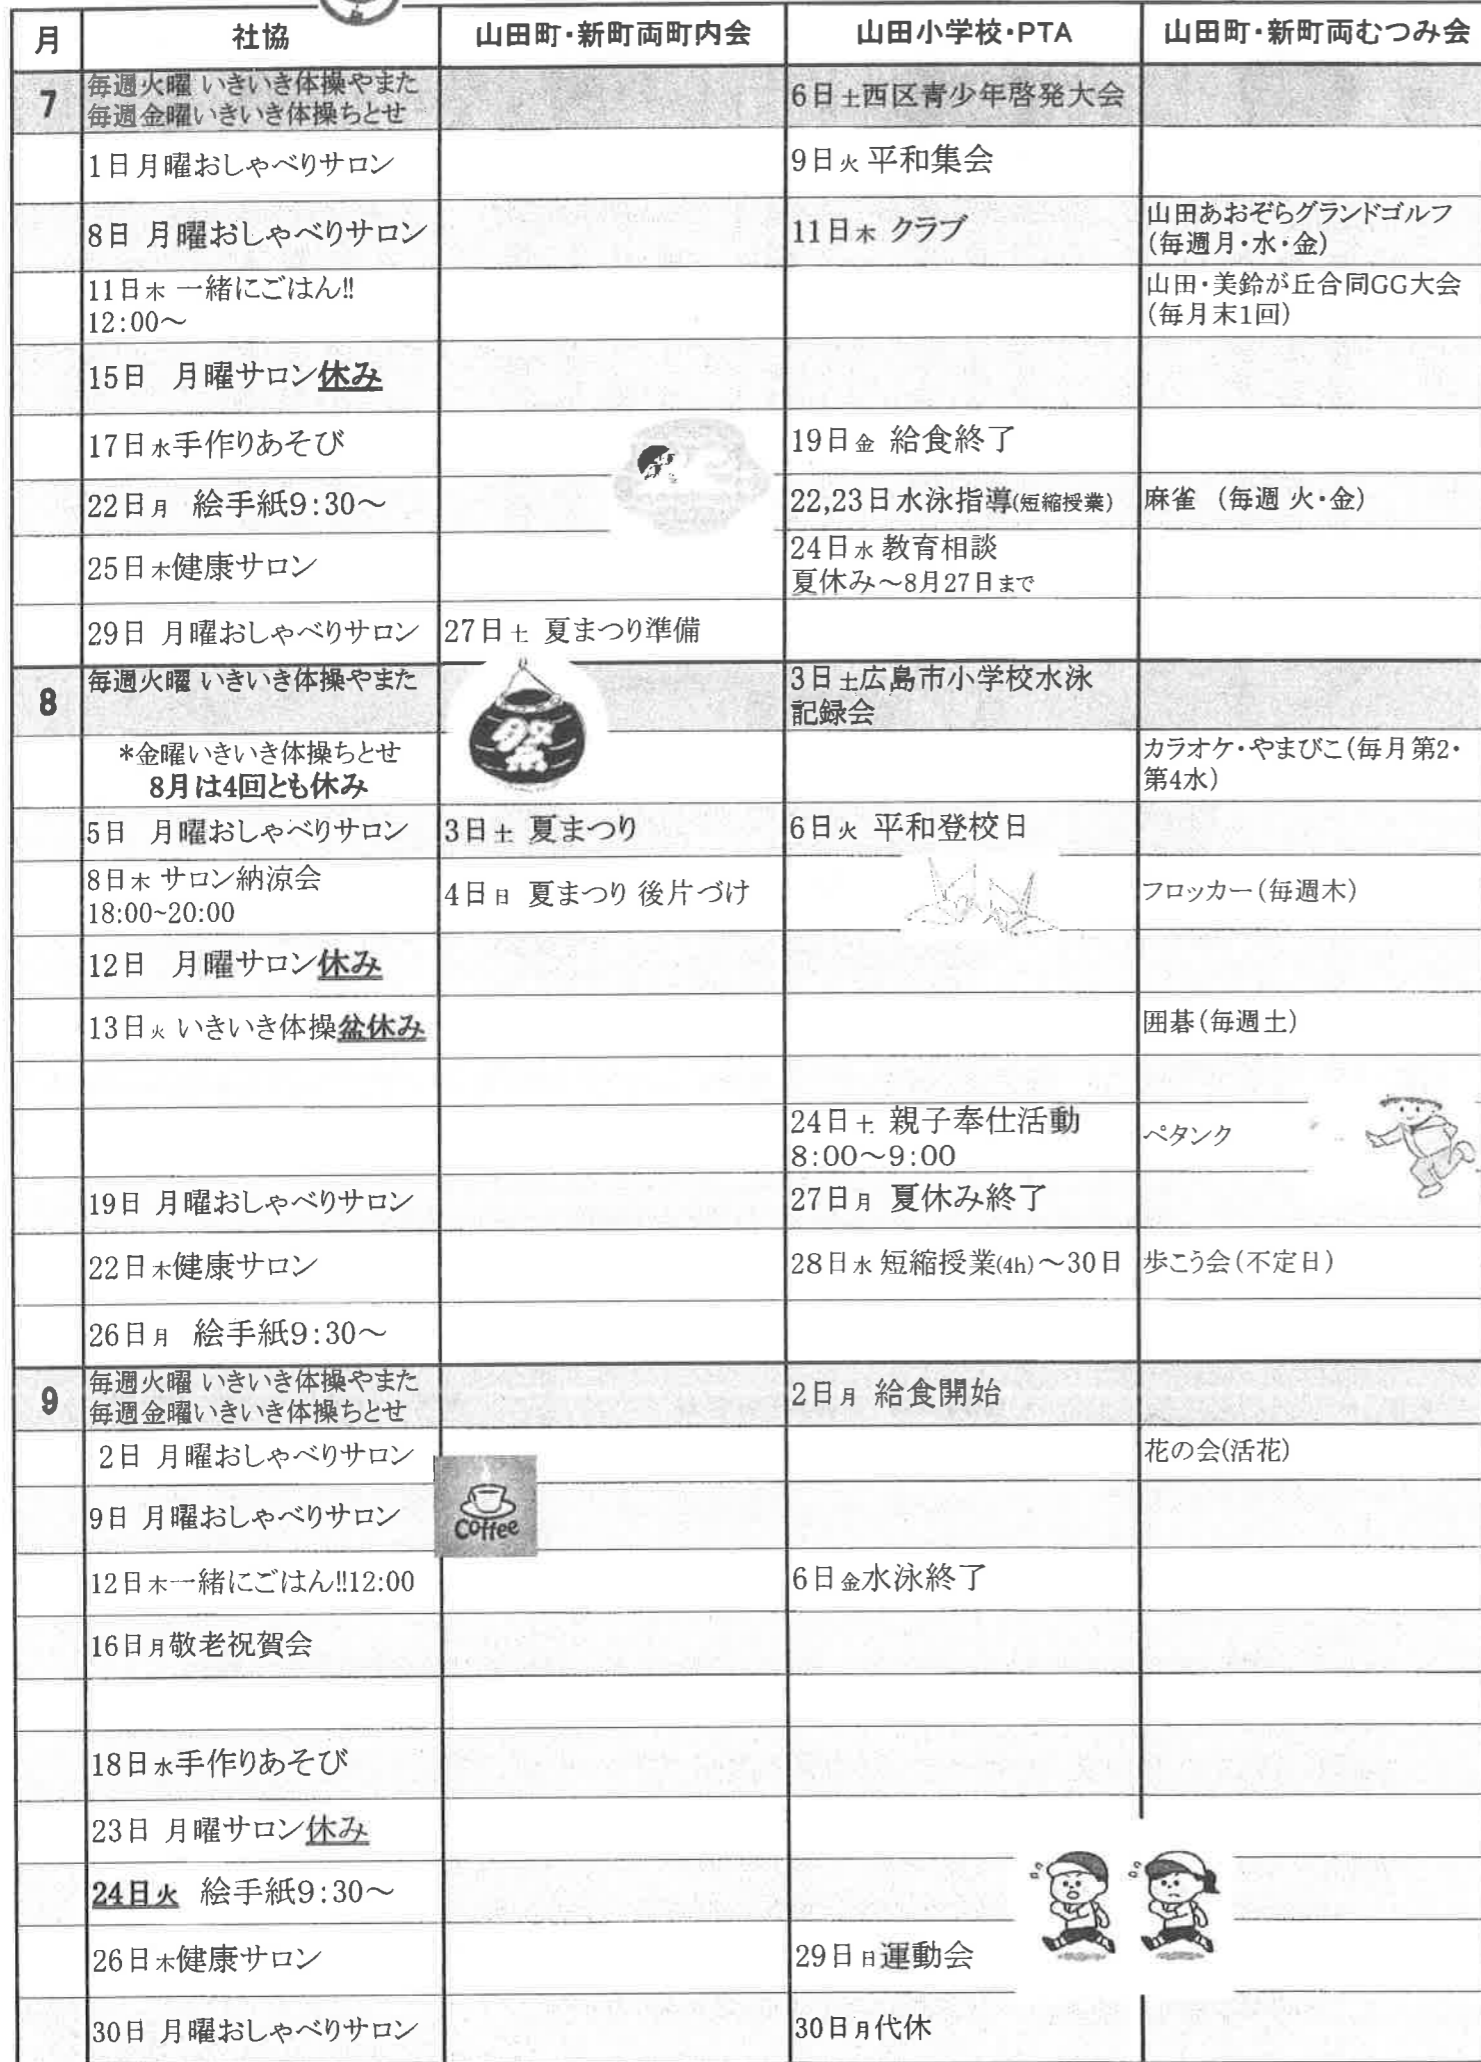 月 社協 山田町・新町両町内会 山田小学校・PTA 山田町・新町両むつみ会
7 毎週火曜 いきいき体操やまた
毎週金曜いきいき体操ちとせ
6日土西区青少年啓発大会
1日月曜おしゃべりサロン
9日火 平和集会
8日 月曜おしゃべりサロン
11日木 クラブ
山田あおぞらグランドゴルフ
(毎週月・水・金)
11日木 一緒にごはん!!
12:00～
山田・美鈴が丘合同GG大会
(毎月末1回)
15日 月曜サロン休み
17日水手作りあそび
19日金 給食終了
22日月 絵手紙9:30～
22,23日水泳指導(短縮授業)
麻雀 (毎週 火・金)
25日木健康サロン
24日水 教育相談
夏休み～8月27日まで
29日 月曜おしゃべりサロン
27日土 夏まつり準備
8 毎週火曜 いきいき体操やまた
祭
3日土広島市小学校水泳
記録会
*金曜いきいき体操ちとせ
8月は4回とも休み
カラオケ・やまびこ(毎月第2・
第4水)
5日 月曜おしゃべりサロン
3日土 夏まつり
6日火 平和登校日
8日木 サロン納涼会
18:00~20:00
4日日 夏まつり 後片づけ
フロッカー(毎週木)
12日 月曜サロン休み
13日火 いきいき体操盆休み
囲碁(毎週土)
24日土 親子奉仕活動
8:00～9:00
ペタンク
19日 月曜おしゃべりサロン
27日月 夏休み終了
22日木健康サロン
28日水 短縮授業(4h)～30日
歩こう会(不定日)
26日月 絵手紙9:30～
9 毎週火曜 いきいき体操やまた
毎週金曜いきいき体操ちとせ
2日月 給食開始
2日 月曜おしゃべりサロン
花の会(活花)
9日 月曜おしゃべりサロン
Coffee
12日木一緒にごはん!!12:00
6日金水泳終了
16日月敬老祝賀会
18日水手作りあそび
23日 月曜サロン休み
24日火 絵手紙9:30～
26日木健康サロン
29日日運動会
30日 月曜おしゃべりサロン
30日月代休